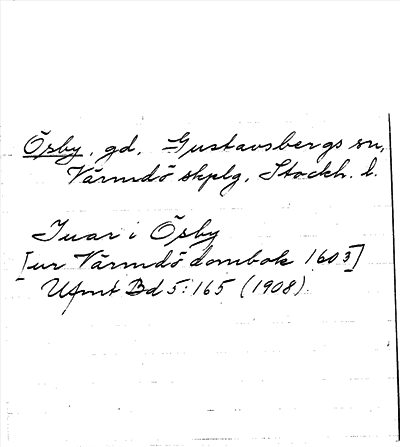 Ösby, gd, Gustavsbergs sn,
Värmdö skplg, Stockh. l.
Ivar i Ösby
[ur Värmdö dombok 1603]
Ufmt Bd 5:165 (1908)